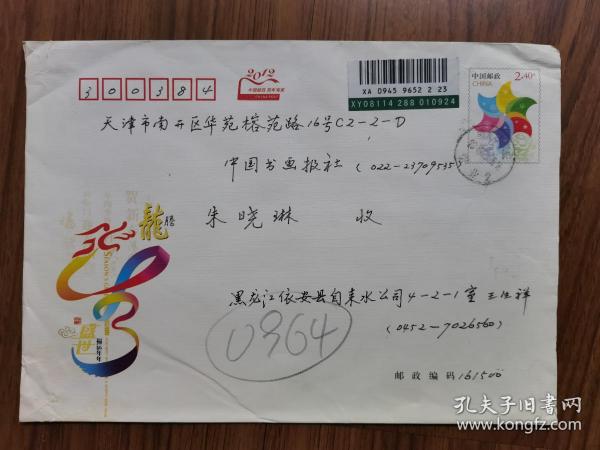 300384
2012
中国邮政 贺年有奖
CHINA POST
XA 0945 9652 2 23
XY08114 288 010924
中国邮政
CHINA
2.40元
天津市南开区华苑榕苑路16号C2-2-D
中国书画报社 (022-23709535)
朱晓琳 收
贺新
龍腾
SEASON'S
盛世
福临年年
黑龙江依安县自来水公司4-2-1室 王洪祥
(0452-7026560)
0364
邮政编码 161500
孔夫子旧书网
www.kongfz.com